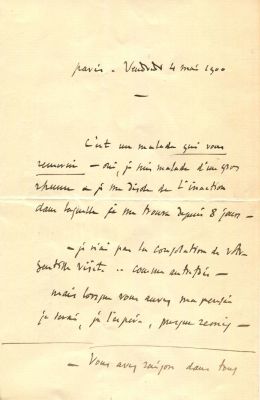 paris - Vendredi 4 mai 1900
—
C'est un malade qui vous
remercie - oui, je suis malade d'un gros
rhume et je me désole de l'inaction
dans laquelle je me trouve depuis 8 jours -
- je n'ai pas la consolation de votre
gentille visite .. comme autrefois -
mais lorsque vous aurez ma pensée
je serai, je l'espère, presque
- Vous avez raison dans tous